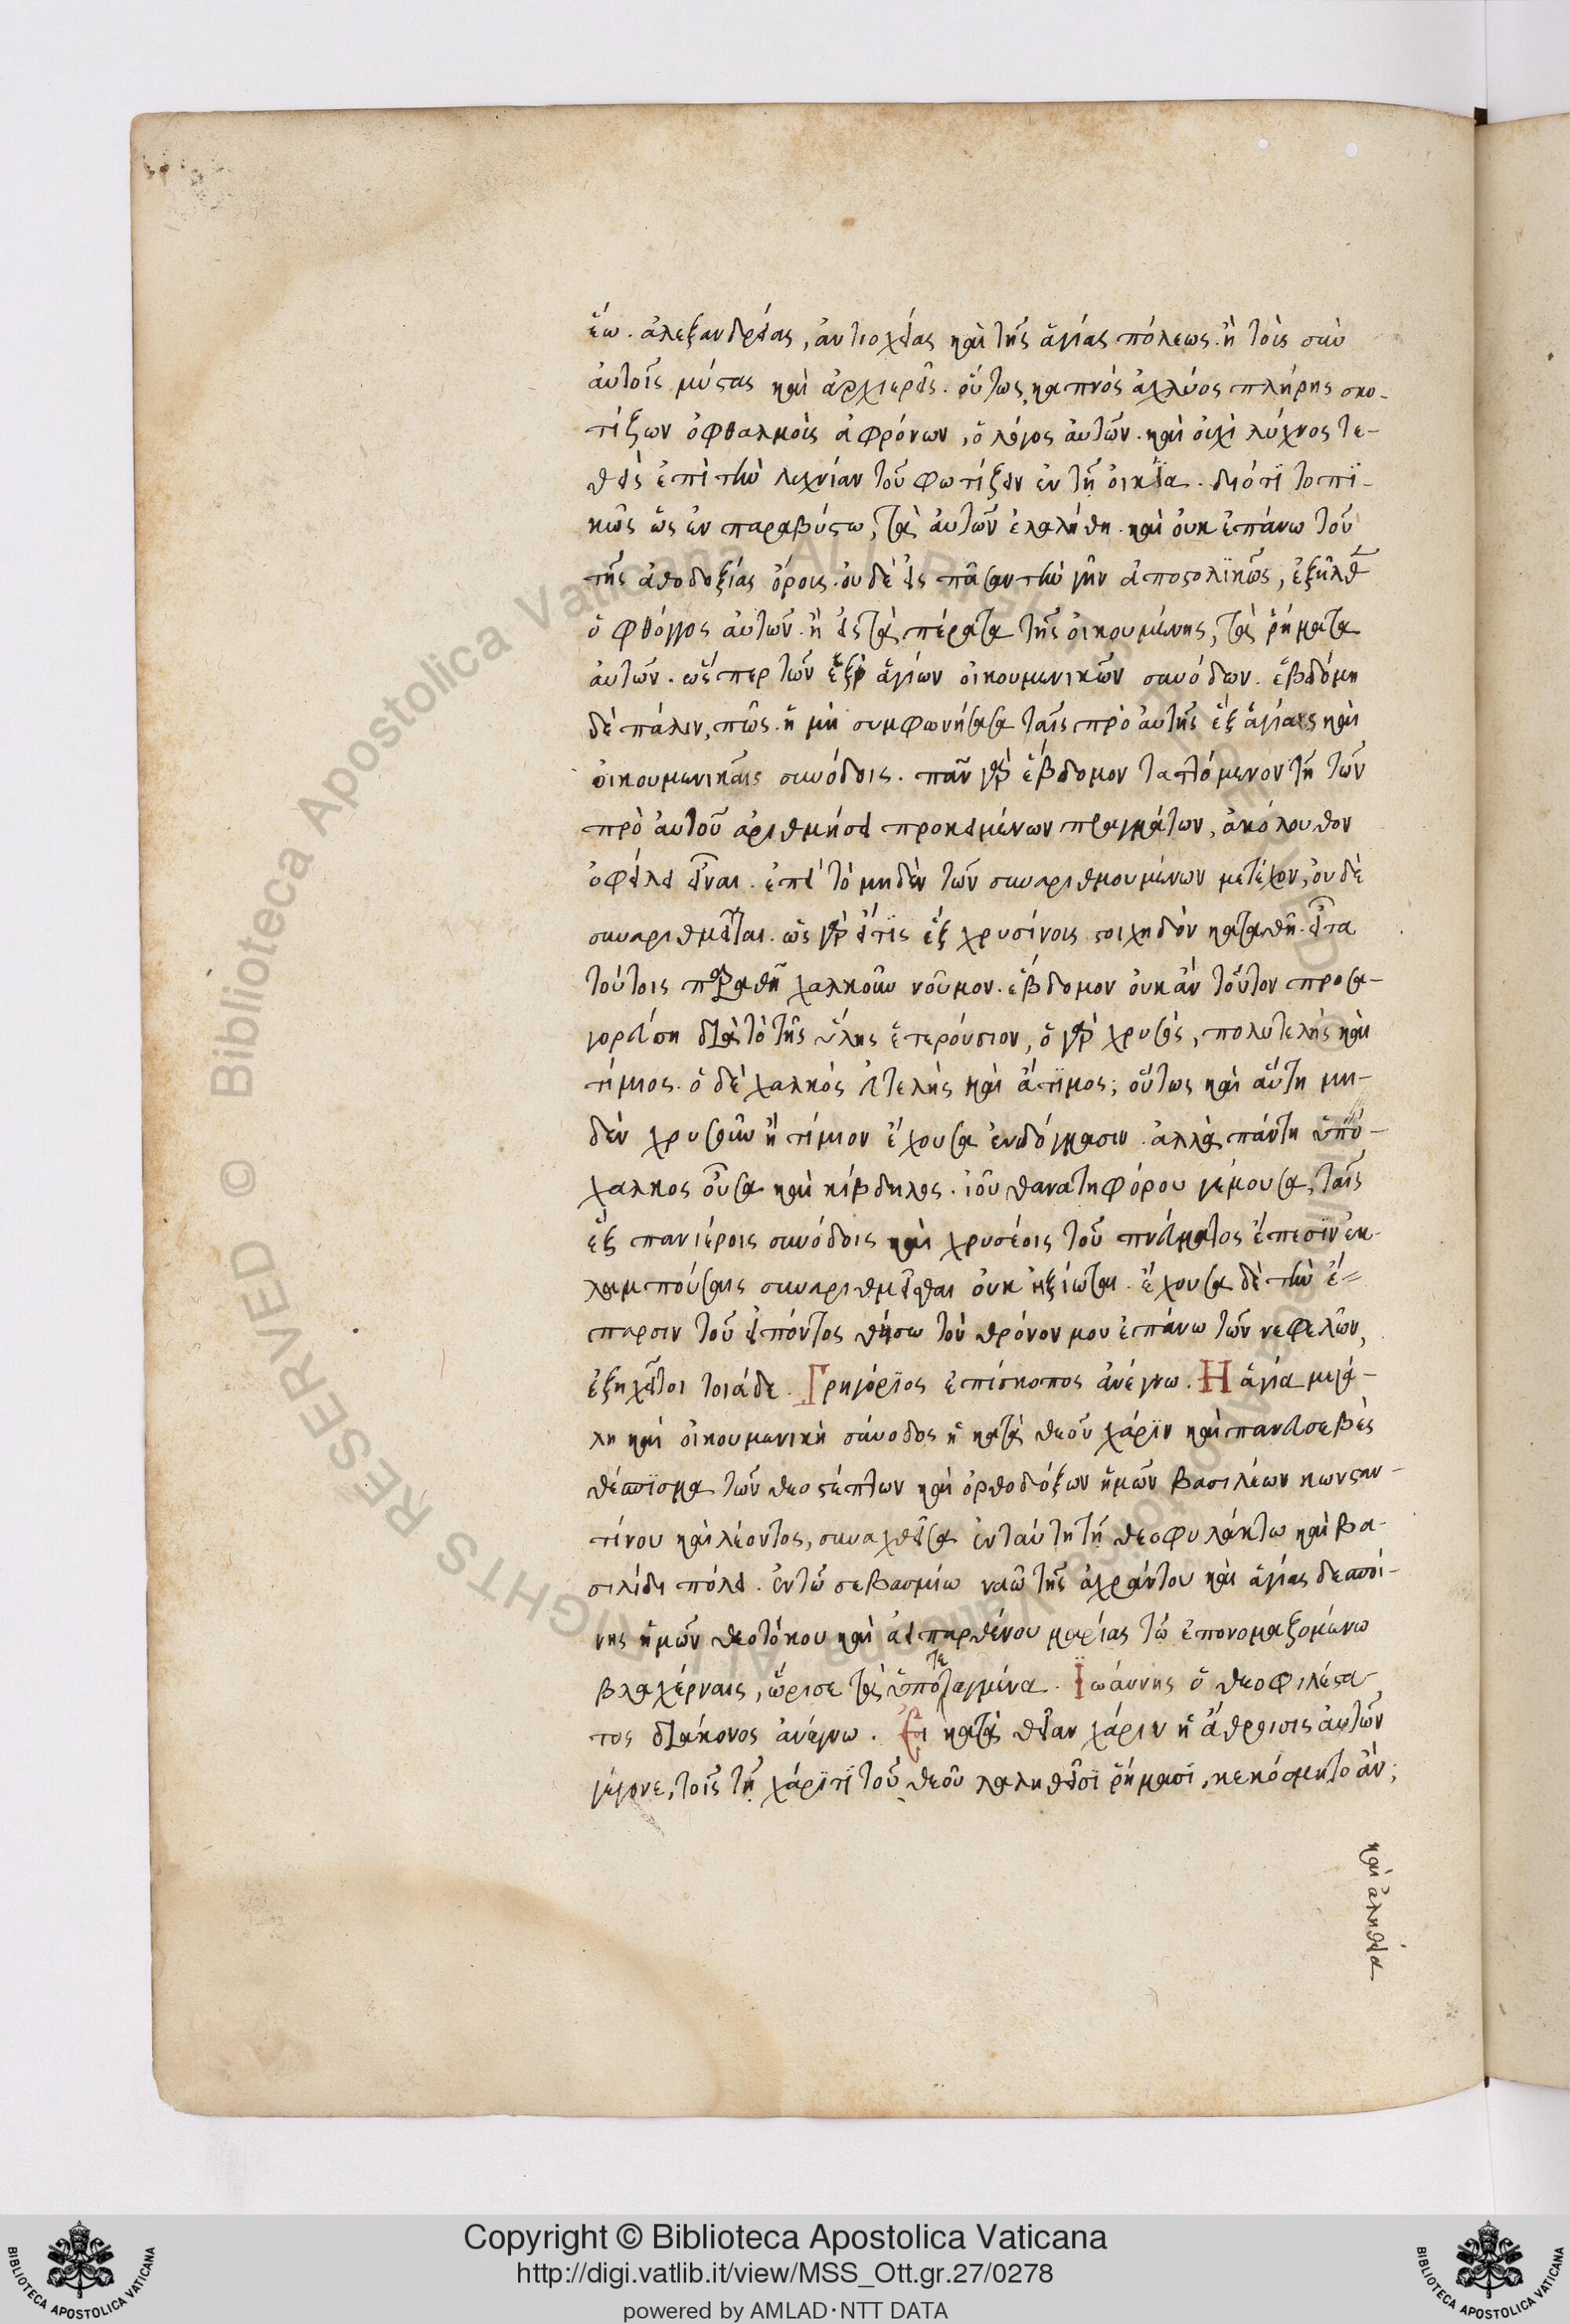 ἕω. ἀλεξανδρείας, ἀντιοχείας καὶ τῆς ἁγίας πόλεως. ἢ τοῖς σὺν
αὐτοῖς μύσταις καὶ ἀρχιερεῦσι. οὕτως καπνὸς ἀχλύος πλήρης σκο-
τίζων ὀφθαλμοὺς ἀφρόνων, ὁ λόγος αὐτῶν. καὶ οὐχὶ λύχνος τε-
θεὶς ἐπὶ τὴν λυχνίαν τοῦ φωτίζειν ἐν τῇ οἰκία. διότι τοπι-
κῶς ὡς ἐν παραβύστω, τὰ αὐτῶν ἐλαλήθη. καὶ οὐκ ἐπάνω τοῦ
τῆς ὀρθοδοξίας ὄρους. οὐδὲ εἰς πᾶσαν τὴν γῆν ἀποστολικῶς, ἐξῆλθεν
ὁ φθόγγος αὐτῶν. ἢ εἰς τὰ πέρατα τῆς οἰκουμένης, τὰ ῥήματα
αὐτῶν. ὥσπερ τῶν ἓξ ἁγίων οἰκουμενικῶν συνόδων. ἑβδόμη
δὲ πάλιν, πῶς. ἡ μὴ συμφωνήσασα ταῖς πρὸ αὐτῆς ἓξ ἁγίαις καὶ
οἰκουμενικαῖς συνόδοις. πᾶν γὰρ ἕβδομον ταττόμενον τῇ τῶν
πρὸ αὐτοῦ ἀριθμήσει προκειμένων πραγμάτων, ἀκόλουθον
ὀφείλει εἶναι. ἐπεὶ τὸ μηδὲν τῶν συναριθμουμένων μετέχον, οὐδὲ
συναριθμεῖται. ὡς γὰρ εἴ τις ἓξ χρυσίνους στοιχηδὸν καταθῆ. εἶτα
τούτοις παραθῆ χαλκοῦν νοῦμον. ἕβδομον οὐκ ἂν τοῦτον προσα-
γορεύση διὰ τὸ τῆς ὕλης ἑτερούσιον, ὁ γὰρ χρυσὸς, πολυτελὴς καὶ
τίμιος. ὁ δὲ χαλκὸς εὐτελὴς καὶ ἄτιμος; οὕτως καὶ αὕτη μη-
δὲν χρυσοῦν ἢ τίμιον ἔχουσα ἐν δόγμασιν. ἀλλὰ πάντη ὑπό-
χαλκος οὖσα καὶ κίβδηλος. ἰοῦ θανατηφόρου γέμουσα, ταῖς
ἓξ πανιέροις συνόδοις καὶ χρυσέοις τοῦ πνεύματος ἔπεσιν ἐκ-
λαμπούσαις συναριθμεῖσθαι οὐκ ἠξίωται. ἔχουσα δὲ τὴν ἔ-
παρσιν τοῦ εἰπόντος θήσω τὸν θρόνον μου ἐπάνω τῶν νεφελῶν,
ἐξηχεῖτοι τοιάδε. Γρηγόριος ἐπίσκοπος ἀνέγνω. Ἡ ἁγία μεγά-
λη καὶ οἰκουμενικὴ σύνοδος ἡ κατὰ θεοῦ χάριν καὶ πανευσεβὲς
θέσπισμα τῶν θεοστέπτων καὶ ὀρθοδόξων ἡμῶν βασιλέων κωνσταν-
τίνου καὶ λέοντος, συναχθεῖσα ἐν ταύτη τῆ θεοφυλάκτω καὶ βα-
σιλίδι πόλει. ἐν τῶ σεβασμίω ναῶ τῆς ἀχράντου καὶ ἁγίας δεσποί-
νης ἡμῶν θεοτόκου καὶ ἀειπαρθένου μαρίας τῶ ἐπονομαζομένω
βλαχέρναις, ὥρισε τὰ ὑποτεταγμένα. Ἰωάννης ὁ θεοφιλέστα-
τος διάκονος ἀνέγνω. Εἰ κατὰ θείαν χάριν ἡ ἄθροισις αὐτῶν
γέγονε, τοῖς τῇ χάριτι τοῦ θεοῦ λαληθεῖσι ῥήμασι, κεκόσμητο ἄν;
καὶ ἀληθεία
Copyright © Biblioteca Apostolica Vaticana
http://digi.vatlib.it/view/MSS_Ott.gr.27/0278
powered by AMLAD·NTT DATA
BIBLIOTECA APOSTOLICA VATICANA
BIBLIOTECA APOSTOLICA VATICANA